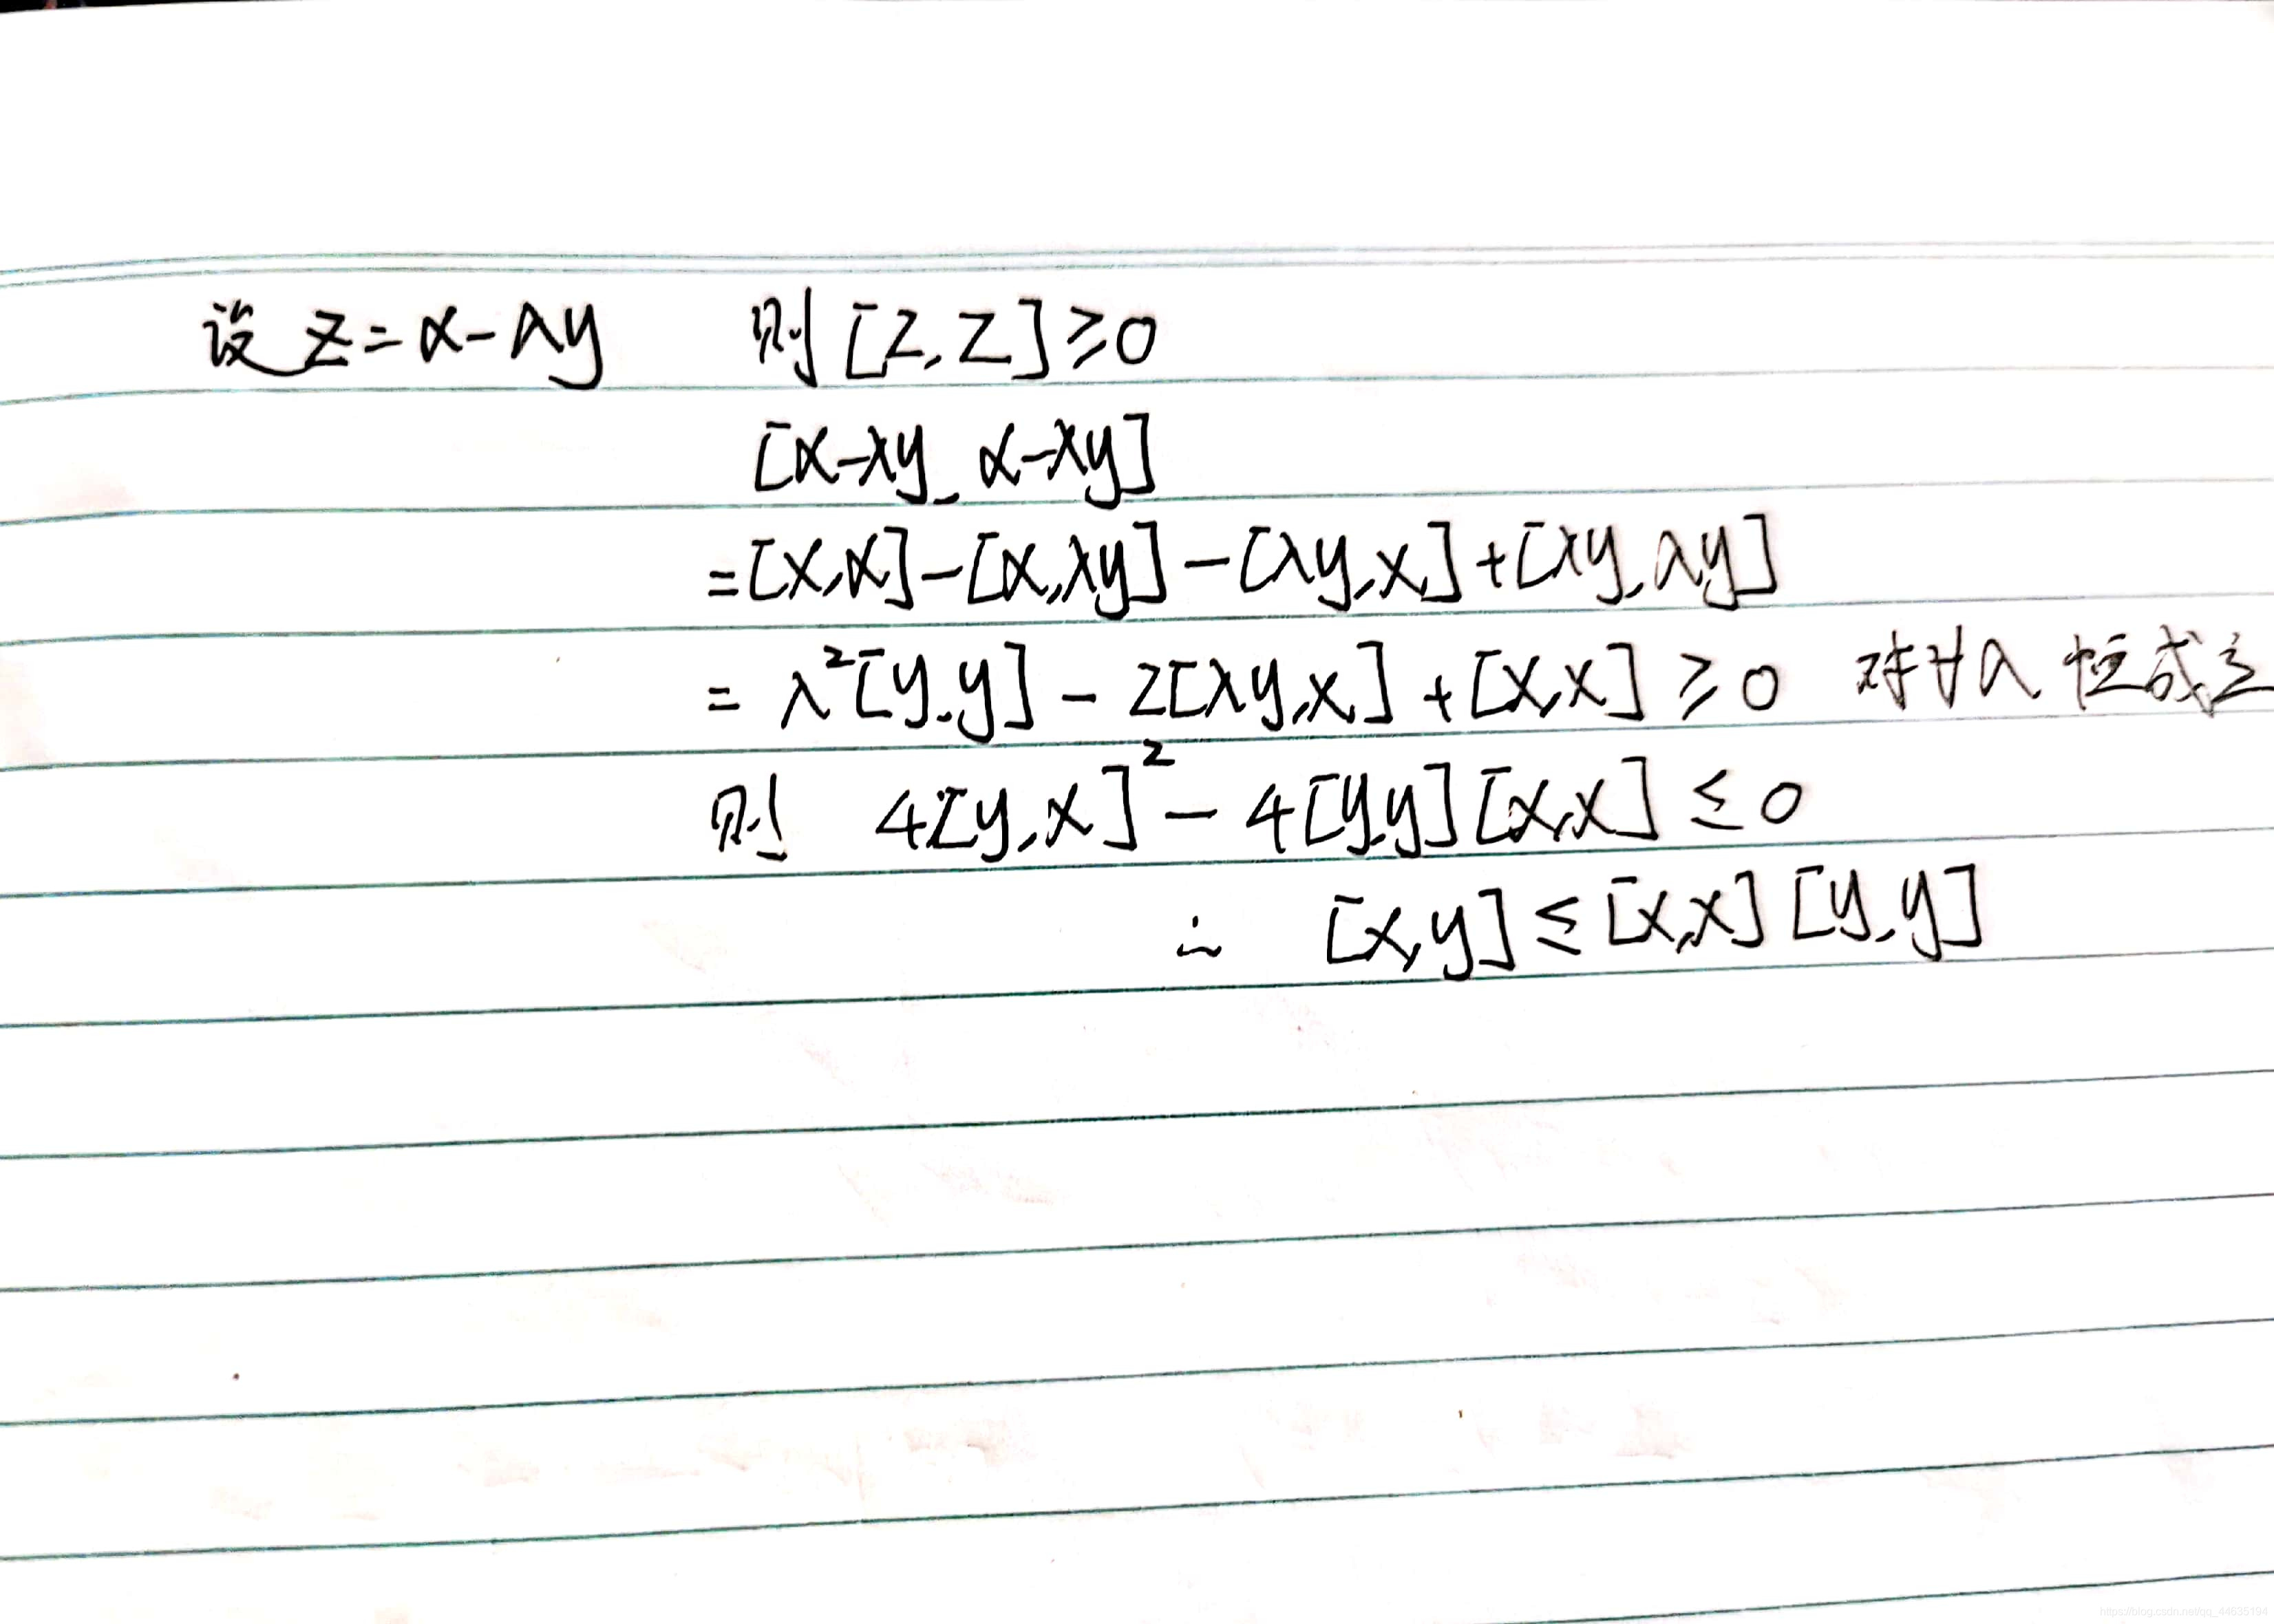 设 z=x-λy 则[z,z]≥0
[x-λy, x-λy]
=[x,x]-[x,λy]-[λy,x]+[λy,λy]
=λ²[y,y]-2[λy,x]+[x,x]≥0 对∀λ恒成立
则 4[y,x]²-4[y,y][x,x]≤0
∴ [x,y]≤[x,x][y,y]
https://blog.csdn.net/qq_44635194